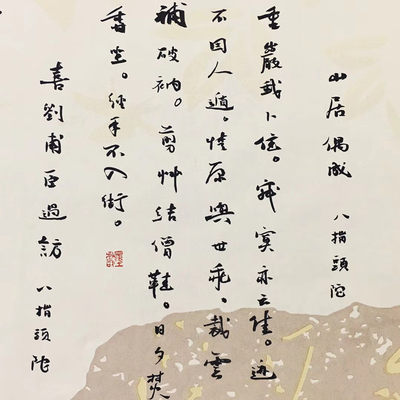 山居偶成 八指頭陀
重巖我卜住。寂寞亦云佳。迹
不因人遁。情原與世乖。裁雲
補破衲。剪艸結僧鞋。日夕焚
香坐。經年不入街。
喜劉甫臣過訪 八指頭陀